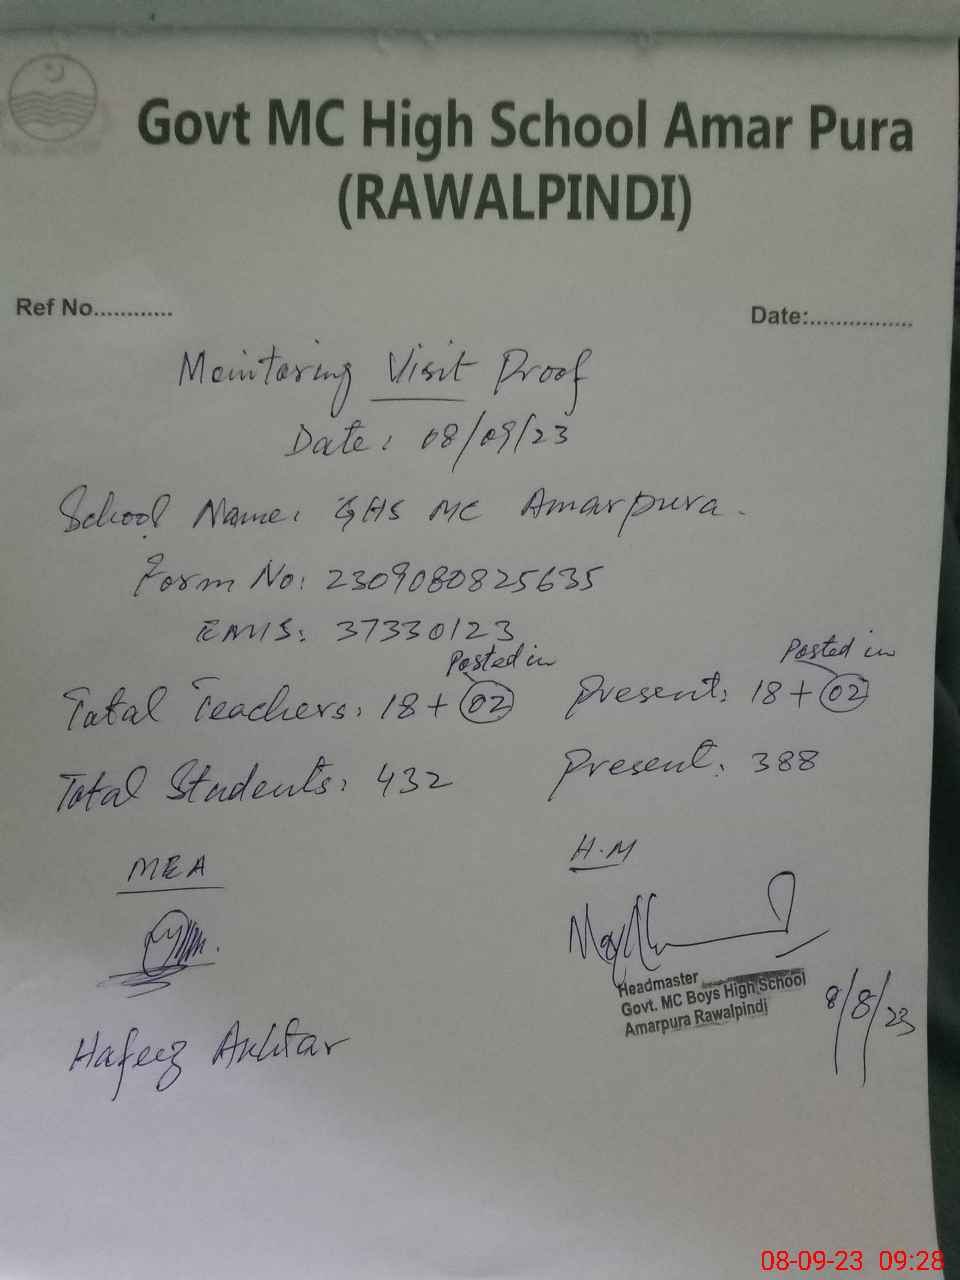 Govt MC High School Amar Pura
(RAWALPINDI)
Ref No............
Date:................
Monitoring Visit Proof
Date: 08/09/23
School Name: GHS MC Amarpura.
Form No: 2309080825635
EMIS: 37330123
Posted in
Posted in
Total Teachers: 18 + 02
Present: 18 + 02
Total Students: 432
Present: 388
MEA
H.M
Headmaster
Govt. MC Boys High School
Amarpura Rawalpindi
8/8/23
Hafeez Akhtar
08-09-23 09:28